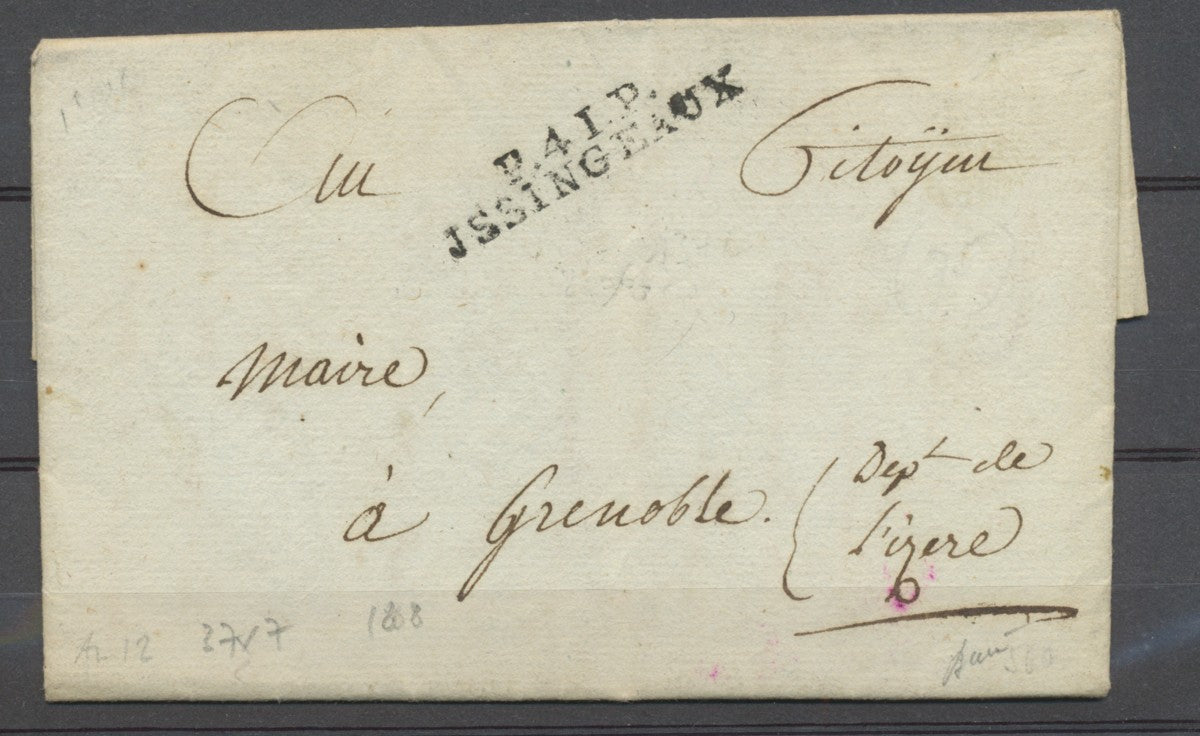 P.41.P.
JSSINGEAUX
Au Citoÿen
Maire,
à Grenoble. Dept de
l'izere
An 12 3787 1808